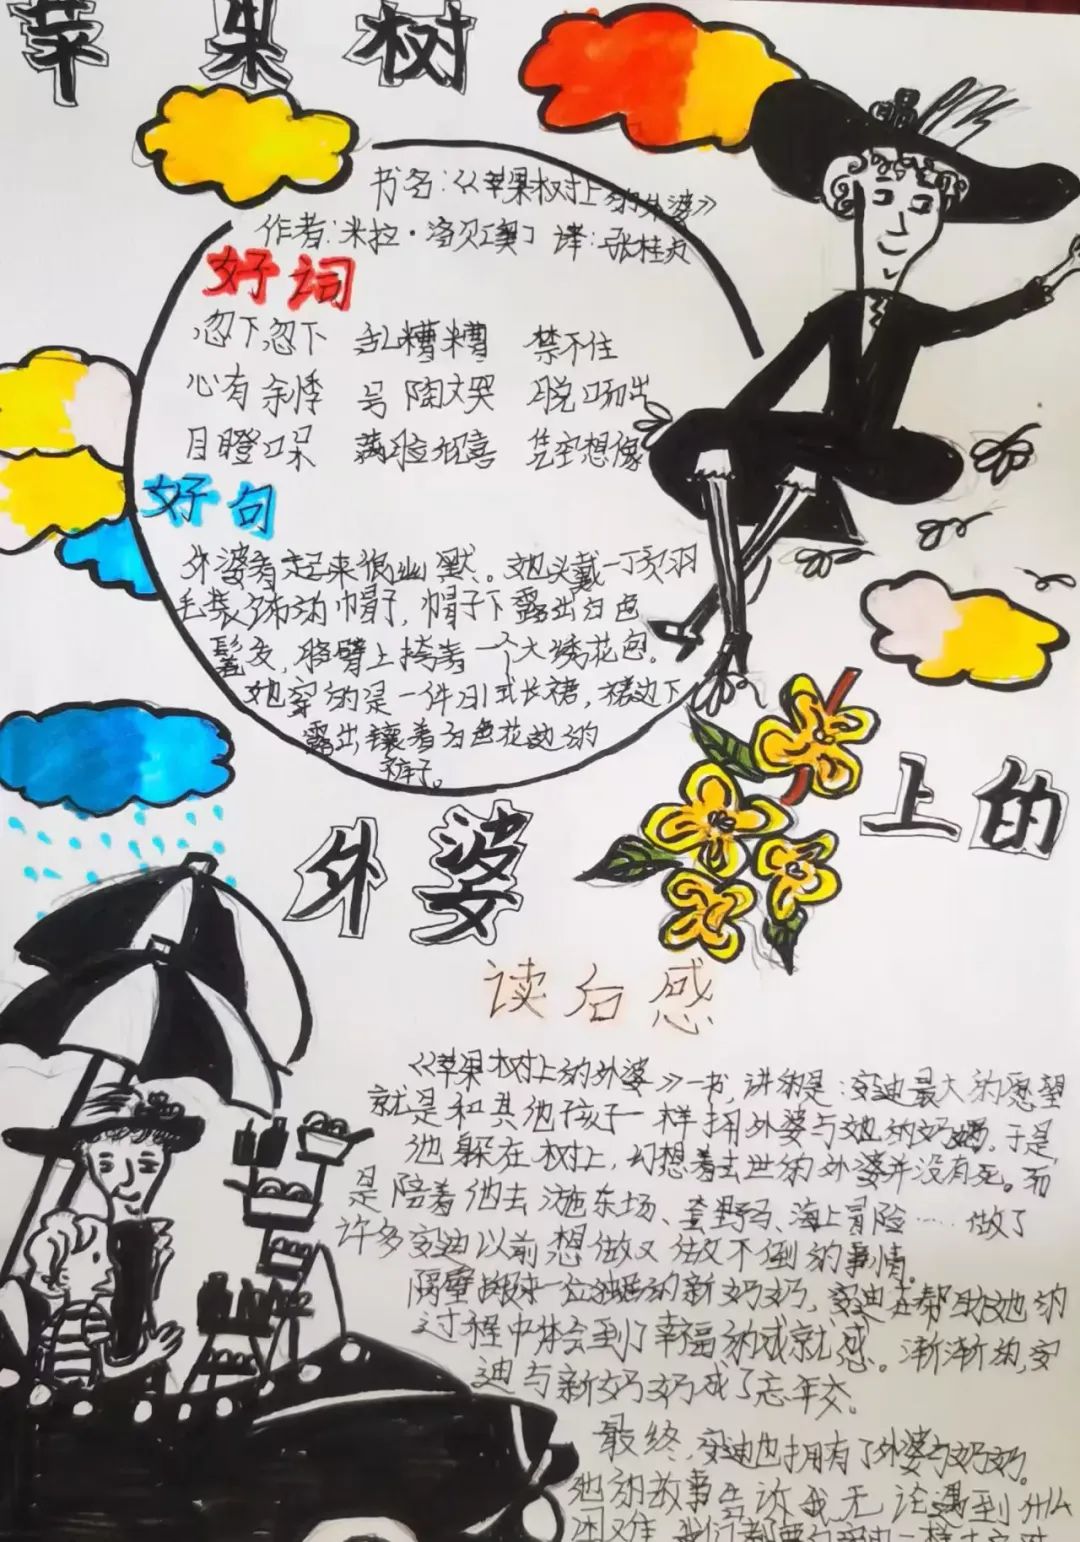 苹果树
书名:《苹果树上的外婆》
作者:米拉·洛贝 译:张桂贞
好词
忽下忽下 乱糟糟 禁不住
心有余悸 号陶大哭 脱口而出
目瞪口呆 满脸狐喜 凭空想像
好句
外婆看起来很幽默。她头戴一顶羽
毛装饰的帽子,帽子下露出白色
鬈发,胳臂上挎着一个大绣花包。
她穿的是一件旧式长裙,裙边下
露出镶着白色花边的
裤子。
上的
外婆
读后感
《苹果树上的外婆》一书,讲的是:安迪最大的愿望
就是和其他孩子一样拥外婆与她的奶奶。于是,
他躲在树上,幻想着去世的外婆并没有死。而
是陪着他去游乐场、套野马、海上冒险……做了
许多安迪以前想做又做不到的事情。
隔壁搬来一位独居的新奶奶,安迪在帮助她的
过程中体会到了幸福的成就感。渐渐的,安
迪与新奶奶成了忘年交。
最终,安迪也拥有了外婆与奶奶。
他的故事告诉我无论遇到什么
困难,我们都要